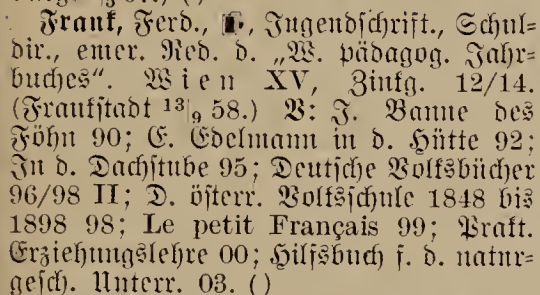 Frank, Ferd., Jugendschrift., Schul-
dir., emer. Red. d. „W. pädagog. Jahr-
buches“. Wien XV, Zinkg. 12/14.
(Fraukstadt 13|9 58.) V: J. Banne des
Föhn 90; E. Edelmann in d. Hütte 92;
In d. Dachstube 95; Deutsche Volksbücher
96/98 II; D. österr. Volksschule 1848 bis
1898 98; Le petit Français 99; Prakt.
Erziehungslehre 00; Hilfsbuch f. d. natur-
gesch. Unterr. 03. ()